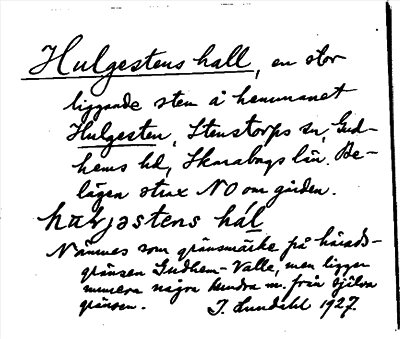 Hulgestens hall, en stor
liggande sten å hemmanet
Hulgesten, Stenstorps sn, Gud-
hems hd, Skarabogs län. Be-
lägen strax NO om gården.
Nämnes som gränsmärke på härads-
gränsen Gudhem-Valle, men ligger
numera några hundra m. från själva
gränsen. J. Lundahl 1927.